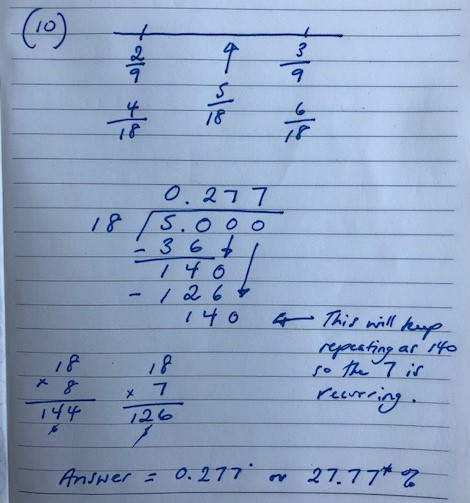 (10)
2/9 3/9
4/18 5/18 6/18
0.277
18 5.000
- 36
140
- 126
140 ← This will keep
repeating as 140
so the 7 is
recurring.
18 18
× 8 × 7
144 126
Answer = 0.277̇ or 27.77̇ %